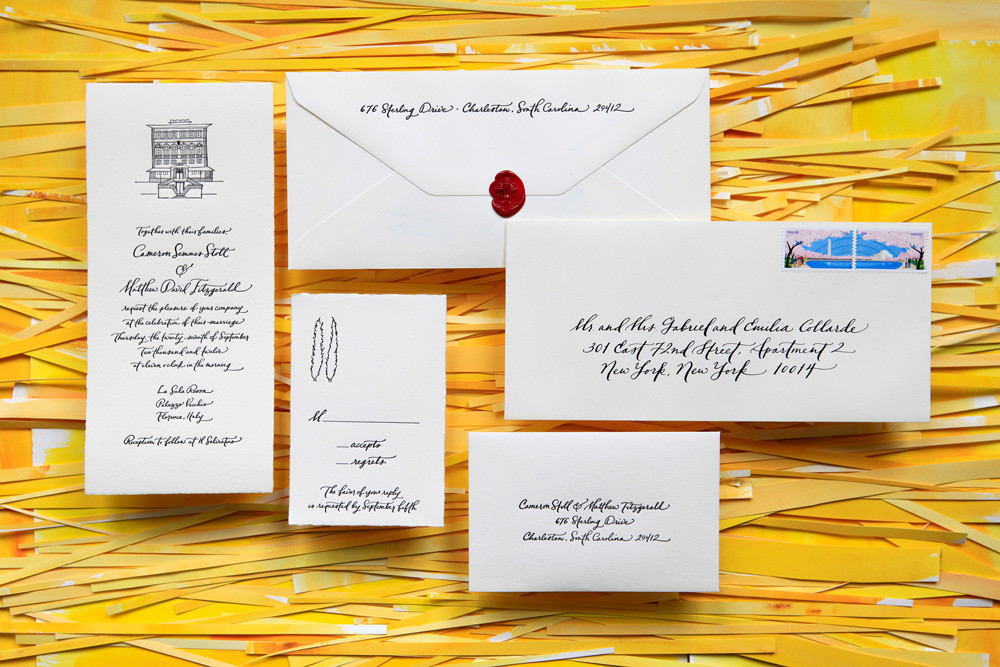 Together with their families
Cameron Semmes Stoll
&
Matthew David Fitzgerald
request the pleasure of your company
at the celebration of their marriage
Thursday, the twenty-ninth of September
Two thousand and twelve
at eleven o'clock in the morning
La Sala Rossa
Palazzo Vecchio
Florence, Italy
Reception to follow at Il Salviatino
676 Sterling Drive · Charleston, South Carolina 29412
M
accepts
regrets
The favor of your reply
is requested by September fifth
Mr and Mrs Gabriel and Emilia Collarde
301 East 72nd Street, Apartment 2
New York, New York 10014
Cameron Stoll & Matthew Fitzgerald
676 Sterling Drive
Charleston, South Carolina 29412